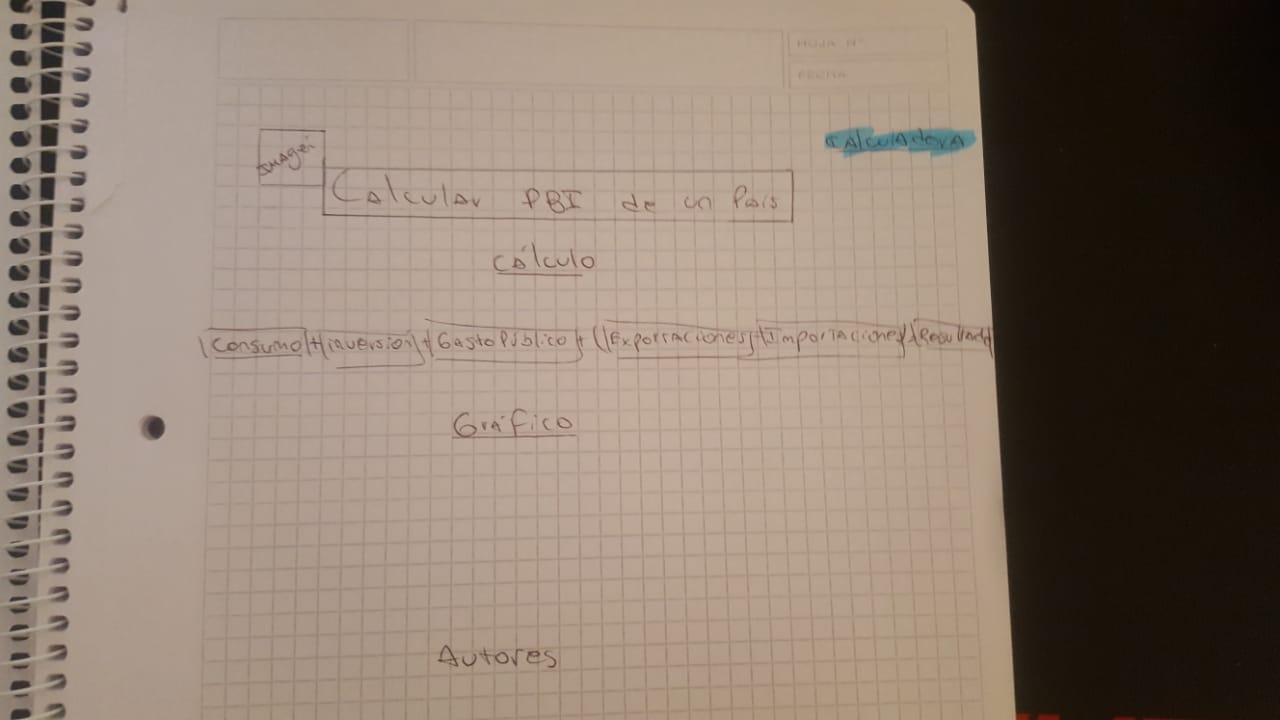 HOJA N°
FECHA
CALCULADORA
Imagen
Calcular PBI de un País
Cálculo
Consumo + inversion + Gasto Público + (Exportaciones - Importaciones) Resultado
Gráfico
Autores